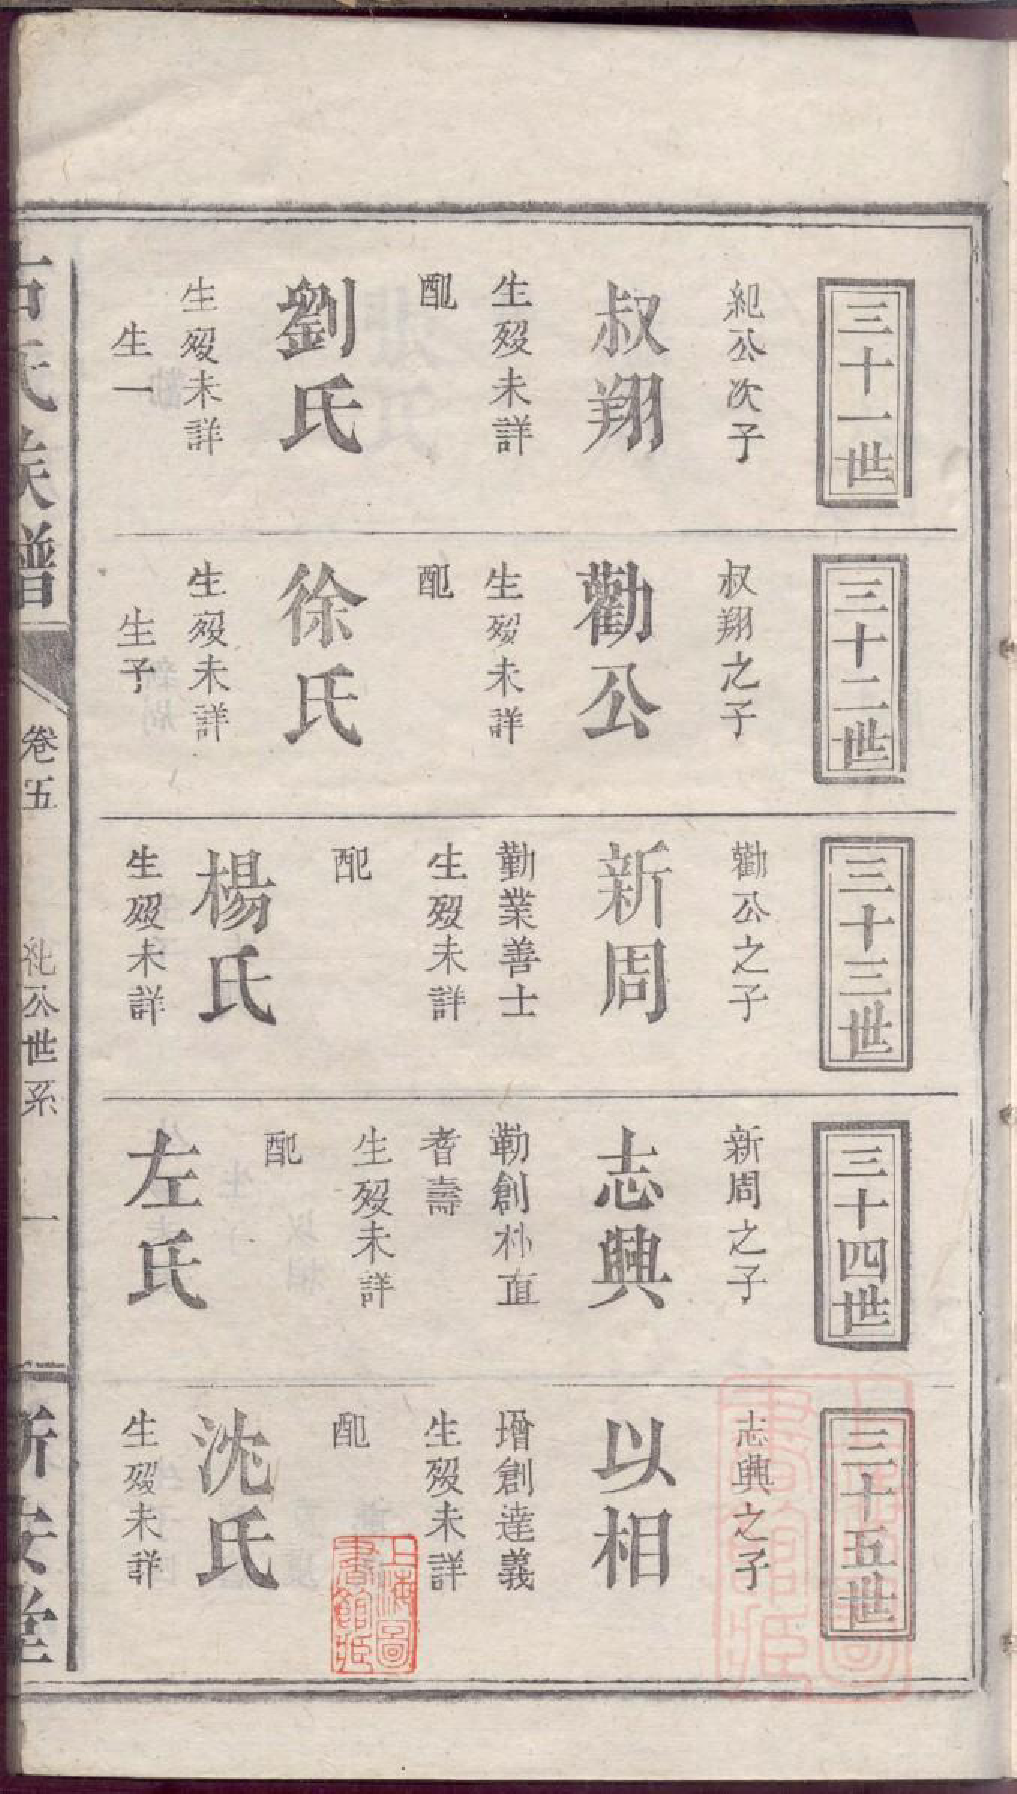 三十一世
紀公次子
叔翔
生歿未詳
配
劉氏
生歿未詳
生一
三十二世
叔翔之子
勸公
生歿未詳
配
徐氏
生歿未詳
生子
三十三世
勸公之子
新周
勤業善士
生歿未詳
配
楊氏
生歿未詳
三十四世
新周之子
志興
勤創朴直
耆壽
生歿未詳
配
左氏
三十五世
志興之子
以相
增創達義
生歿未詳
配
沈氏
生歿未詳
氏族譜
卷五
紀公世系
一
新安堂
上海圖書館藏